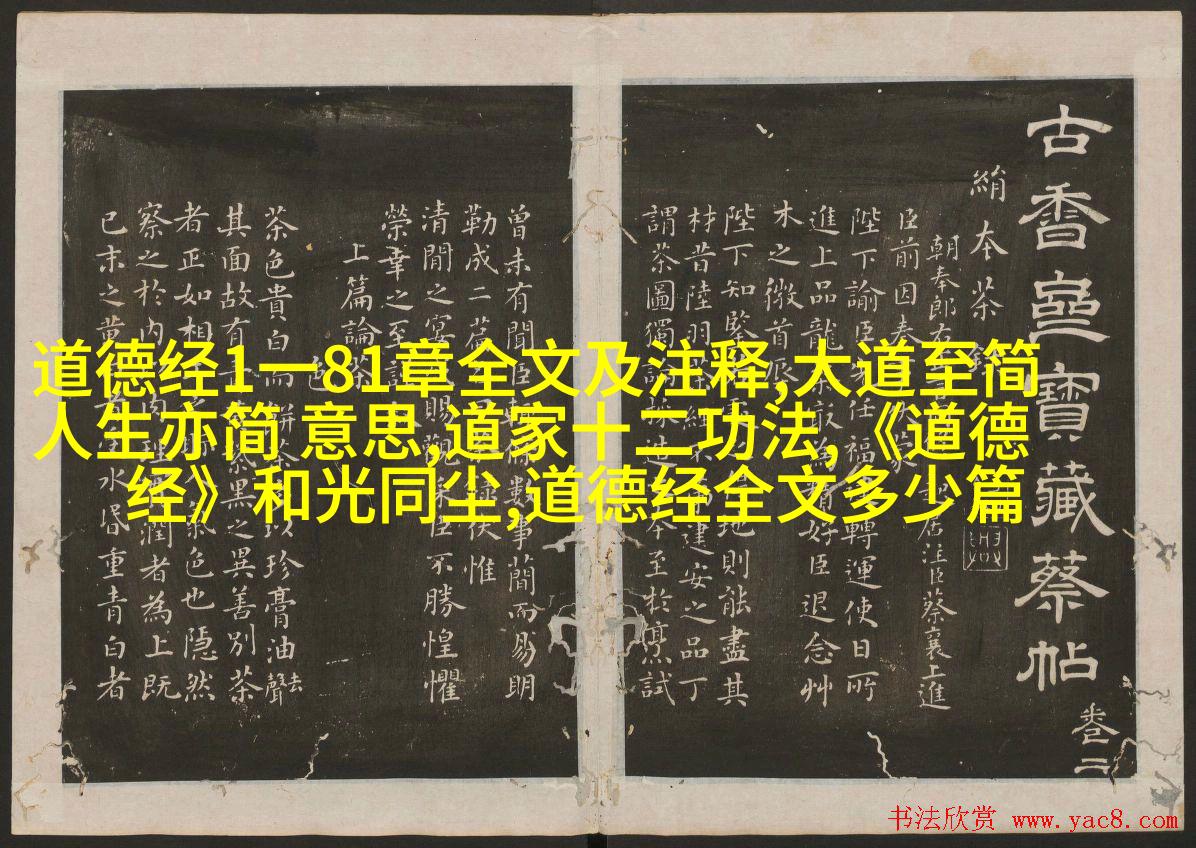 道德经1一81章全文及注释,大道至简
人生亦简 意思,道家十二功法,《道德
经》和光同尘,道德经全文多少篇
古香齋寶藏蔡帖
卷二
絹本茶
朝奉郎右 居注臣蔡襄上進
臣前因奏
陛下諭臣 任福 轉運使日所
進上品龍茶 為 好臣退念艸
木之微首辰
陛下知鑒 地則能盡其
材昔陸羽 建安之品丁
謂茶圖獨 採造 本至於烹試
曾未有聞臣 數事簡而易明
勒成二篇 伏惟
清閒之宴 賜觀采臣不勝惶懼
榮幸之至
上篇論茶
色
茶色貴白而餅茶 以珍膏油去聲
其面故有青 紫黑之異善別茶
者正如相 氣色也隱然
察之於內 潤者為上既
已末之黃 水昏重青白者
书法欣赏 www.yac8.com